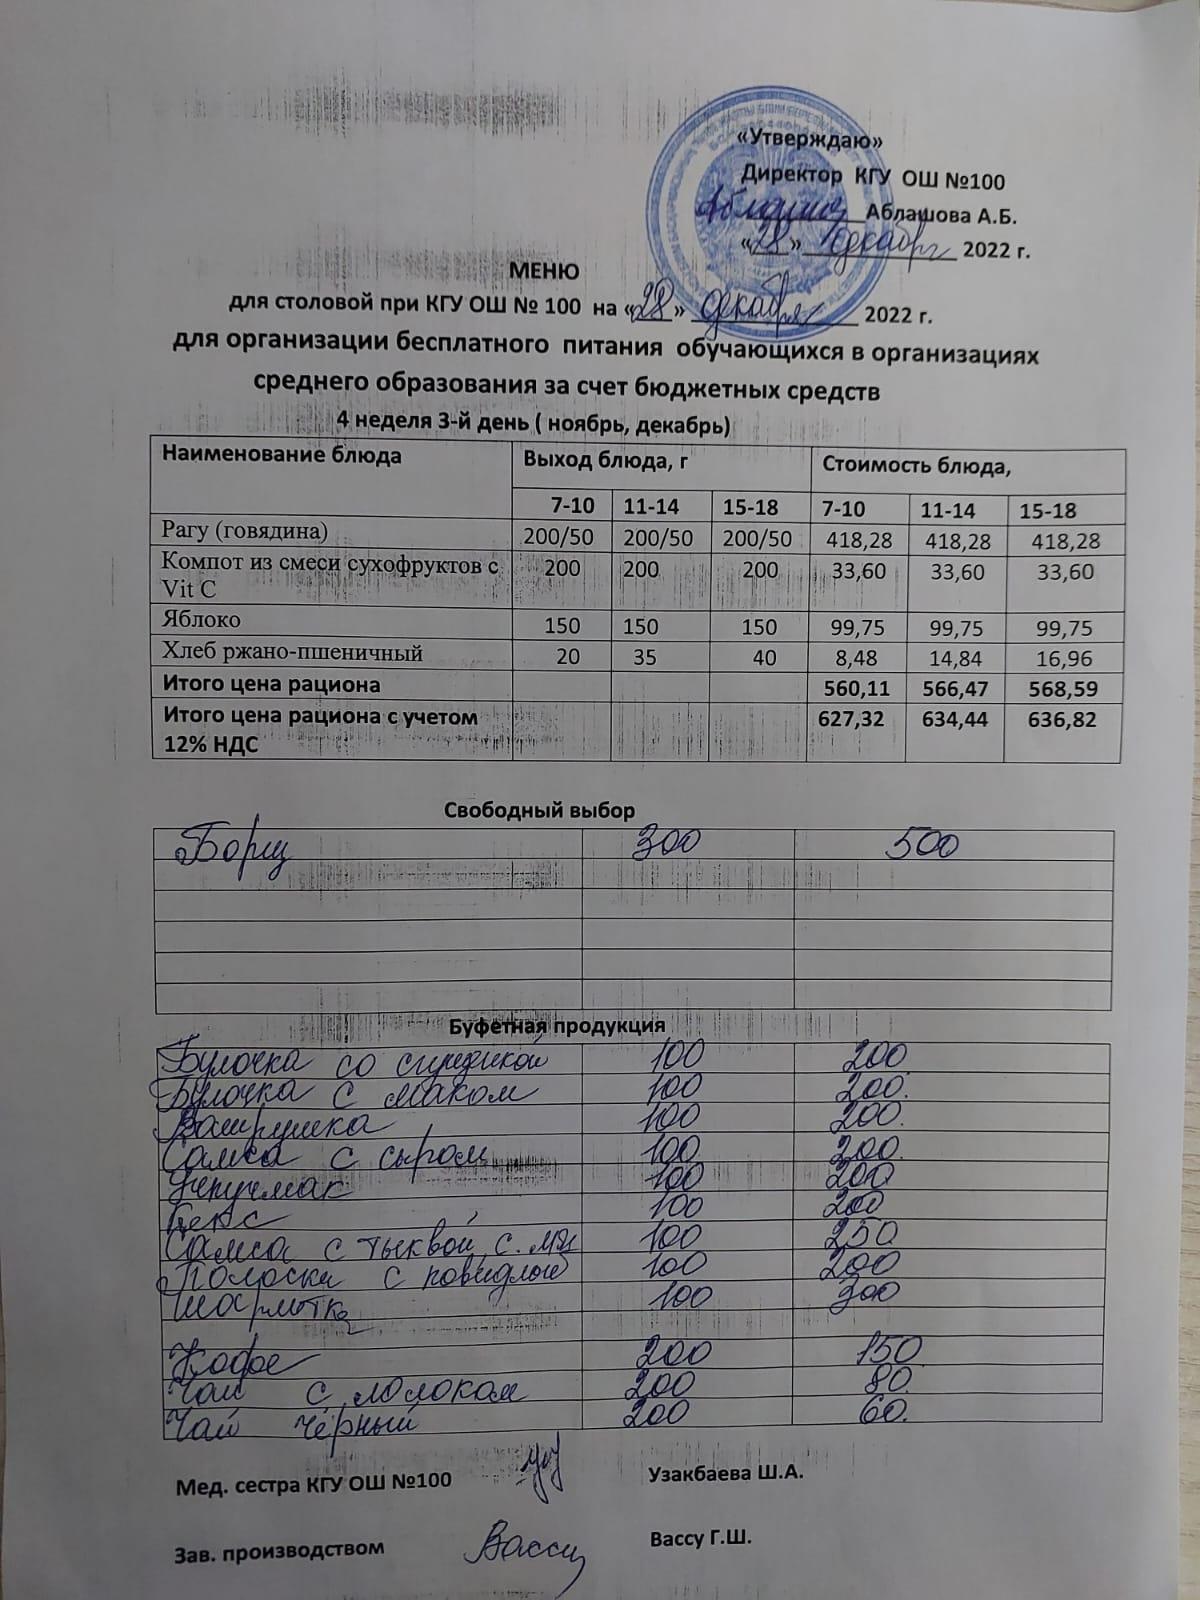 «Утверждаю»
Директор КГУ ОШ №100
Аблашова А.Б.
«28» декабря 2022 г.
МЕНЮ
для столовой при КГУ ОШ № 100 на «28» декабря 2022 г.
для организации бесплатного питания обучающихся в организациях
среднего образования за счет бюджетных средств
4 неделя 3-й день ( ноябрь, декабрь)
Наименование блюда Выход блюда, г Стоимость блюда,
7-10 11-14 15-18 7-10 11-14 15-18
Рагу (говядина) 200/50 200/50 200/50 418,28 418,28 418,28
Компот из смеси сухофруктов с 200 200 200 33,60 33,60 33,60
Vit C
Яблоко 150 150 150 99,75 99,75 99,75
Хлеб ржано-пшеничный 20 35 40 8,48 14,84 16,96
Итого цена рациона 560,11 566,47 568,59
Итого цена рациона с учетом 627,32 634,44 636,82
12% НДС
Свободный выбор
Борщ 300 500
Буфетная продукция
Булочка со 100 200
Булочка с маком 100 200.
Ватрушка 100 200.
Самса с сыром 100 200.
Учпучмак 100 200
Кекс 100 200
Самса с тыквой, с. 100 250
Полоски с повидлой 100 200
Шарлотка 100 300
Кофе 200 150
Чай с молоком 200 80.
Чай чёрный 200 60.
Мед. сестра КГУ ОШ №100 Узакбаева Ш.А.
Зав. производством Вассу Вассу Г.Ш.